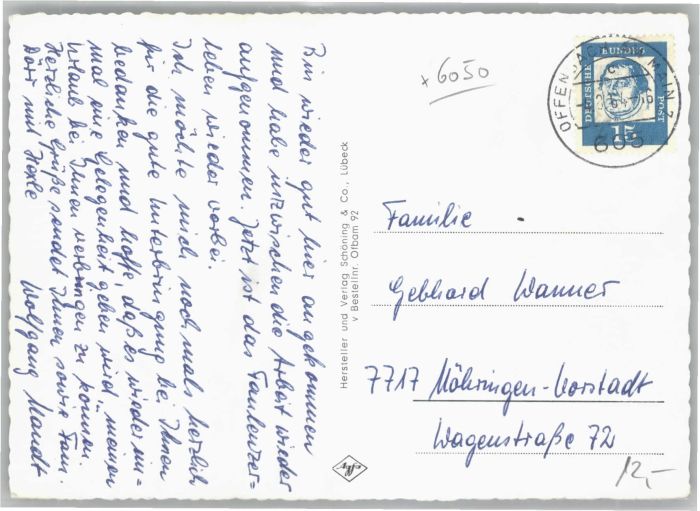 Bin wieder gut hier angekommen
und habe inzwischen die Arbeit wieder
aufgenommen. Jetzt ist das Faulenzer=
leben wieder vorbei.
Ich möchte mich nochmals herzlich
für die gute Unterbringung bei Ihnen
bedanken und hoffe, daß es wieder ein=
mal eine Gelegenheit geben wird meinen
Urlaub bei Ihnen verbringen zu können.
Herzliche Grüße sendet Ihnen sowie Fam.
Dörr mit Hexle
Wolfgang Mandt
Hersteller und Verlag Schöning & Co., Lübeck
v Bestellnr. Ofbam 92
Agfa
x 6050
OFFENBACH AM MAIN 7
605
DEUTSCHE BUNDESPOST
15
Familie
Gebhard Wanner
7717 Möhringen-Vorstadt
Wagenstraße 72
12,-